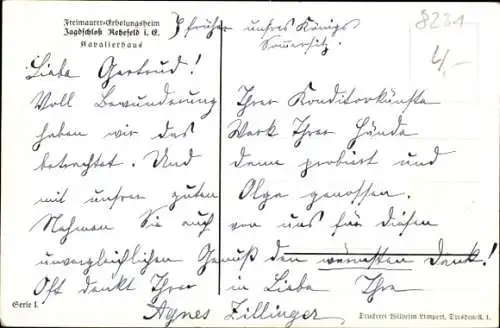 Freimaurer-Erholungsheim
Jagdschloß Rehefeld i. E.
Kavalierhaus
früher unsres Königs
Sommersitz.
8231
4,-
Liebe Gertrud!
Voll Bewunderung Ihrer Konditorkünste
haben wir das Werk Ihrer Hände
betrachtet. Und dann probiert und
mit unsrer guten Olga genossen.
Nehmen Sie auch von uns für diesen
unvergleichlichen Genuß den wärmsten Dank!
Oft denkt Ihrer in Liebe Ihre
Agnes Zillinger
Serie I.
Druckerei Wilhelm Limpert, Dresden-A. 1.